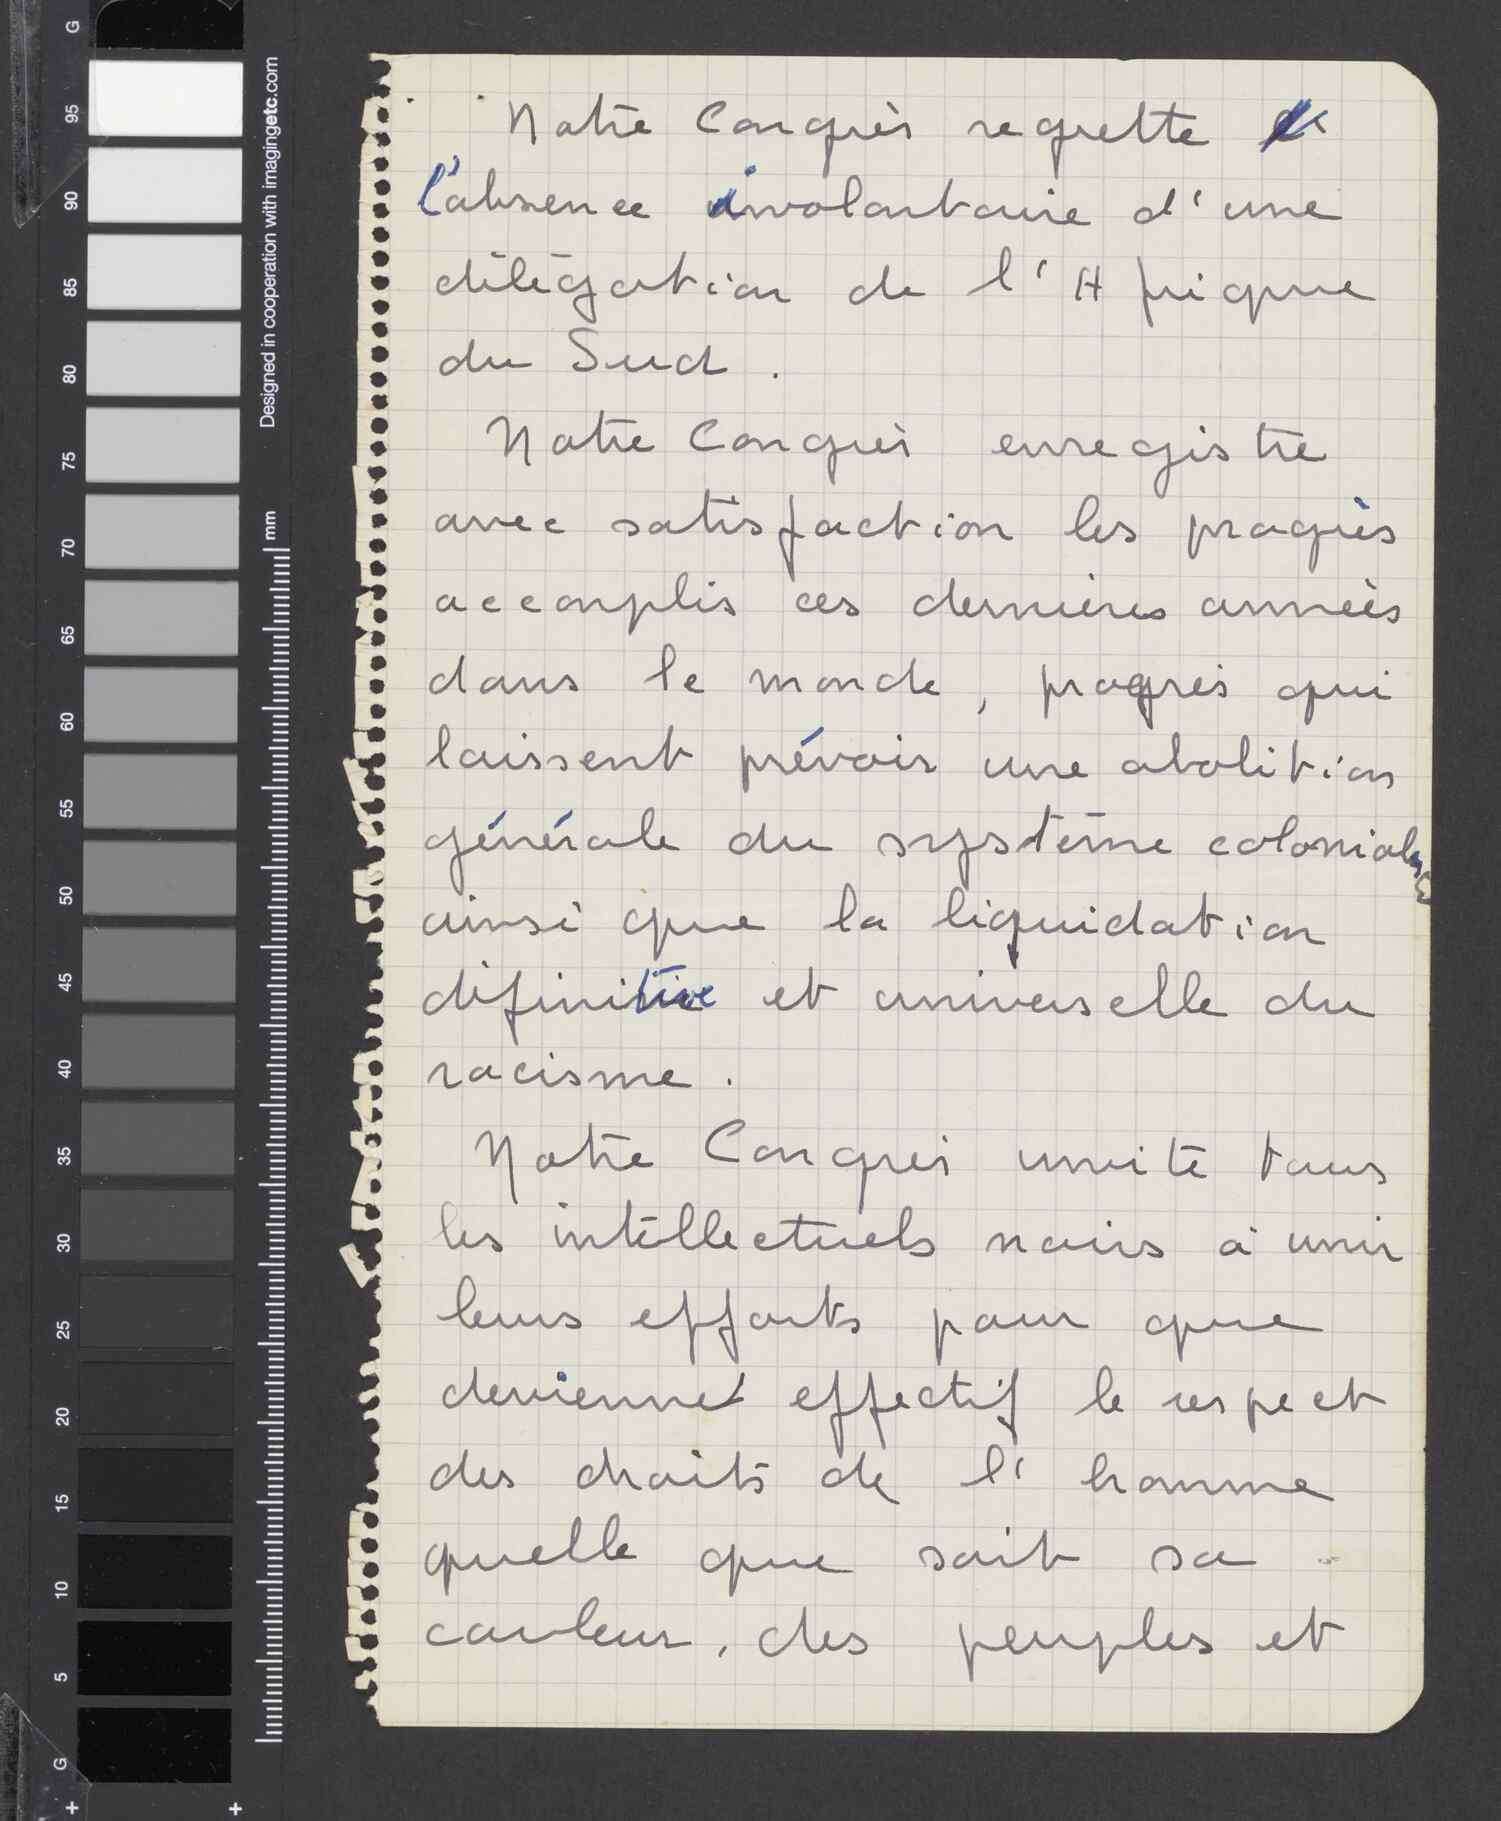 Notre Congrès regrette
l'absence involontaire d'une
délégation de l'Afrique
du Sud.
Notre Congrès enregistre
avec satisfaction les progrès
accomplis ces dernières années
dans le monde, progrès qui
laissent prévoir une abolition
générale du système colonial
ainsi que la liquidation
définitive et universelle du
racisme.
Notre Congrès invite tous
les intellectuels noirs à unir
leurs efforts pour que
devienne effectif le respect
des droits de l'homme
quelle que soit sa
couleur, des peuples et
Designed in cooperation with imagingetc.com
mm
G
95
90
85
80
75
70
65
60
55
50
45
40
35
30
25
20
15
10
5
G